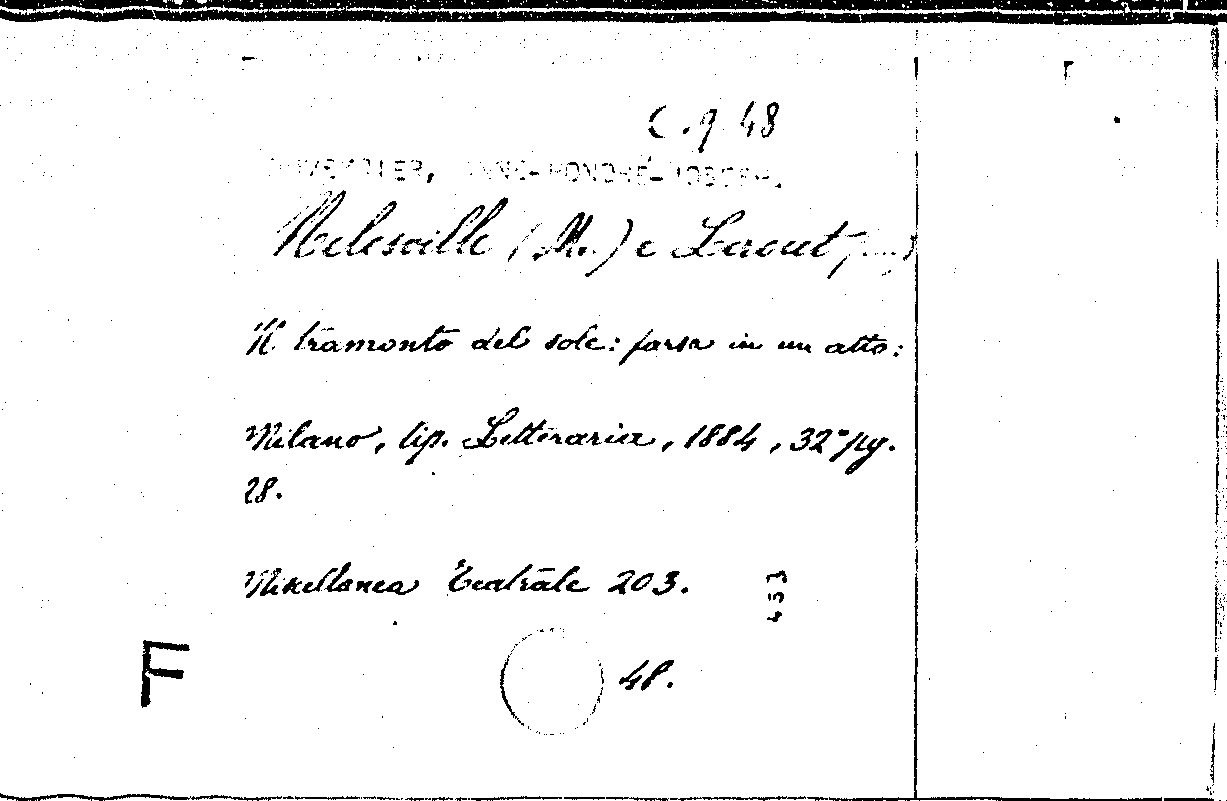 C.9.48
DUVEYRIER, ANNE-HONORÉ-JOSEPH.
Melesville (M.) e Lerout
Il tramonto del sole: farsa in un atto:
Milano, tip. Letteraria, 1884, 32° pg.
28.
Miscellanea Teatrale 203.
433
48.
F